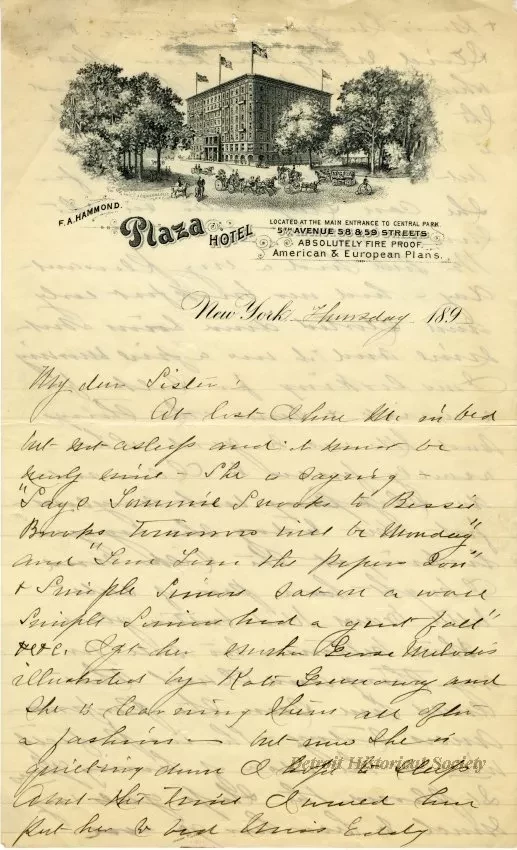 F. A. HAMMOND.
Plaza HOTEL
LOCATED AT THE MAIN ENTRANCE TO CENTRAL PARK
5TH AVENUE 58 & 59 STREETS
ABSOLUTELY FIRE PROOF.
American & European Plans.
New York Thursday 189
My dear Sister:
At last I have Me. in bed
but not asleep and it must be
nearly nine - She is saying -
"Says Tommie Snooks to Bessie
Brooks Tomorrow will be Monday"
and "Tom Tom the Pipers Son"
& Simple Simon sat on a wall
Simple Simon had a great fall"
&c&c. I got her Mother Goose Melodies
illustrated by Kate Greenaway and
She is learning them all after
a fashion. - but now she is
quieting down I hope to sleep
About this time I
put her to bed Miss Eddy
Detroit Historical Society